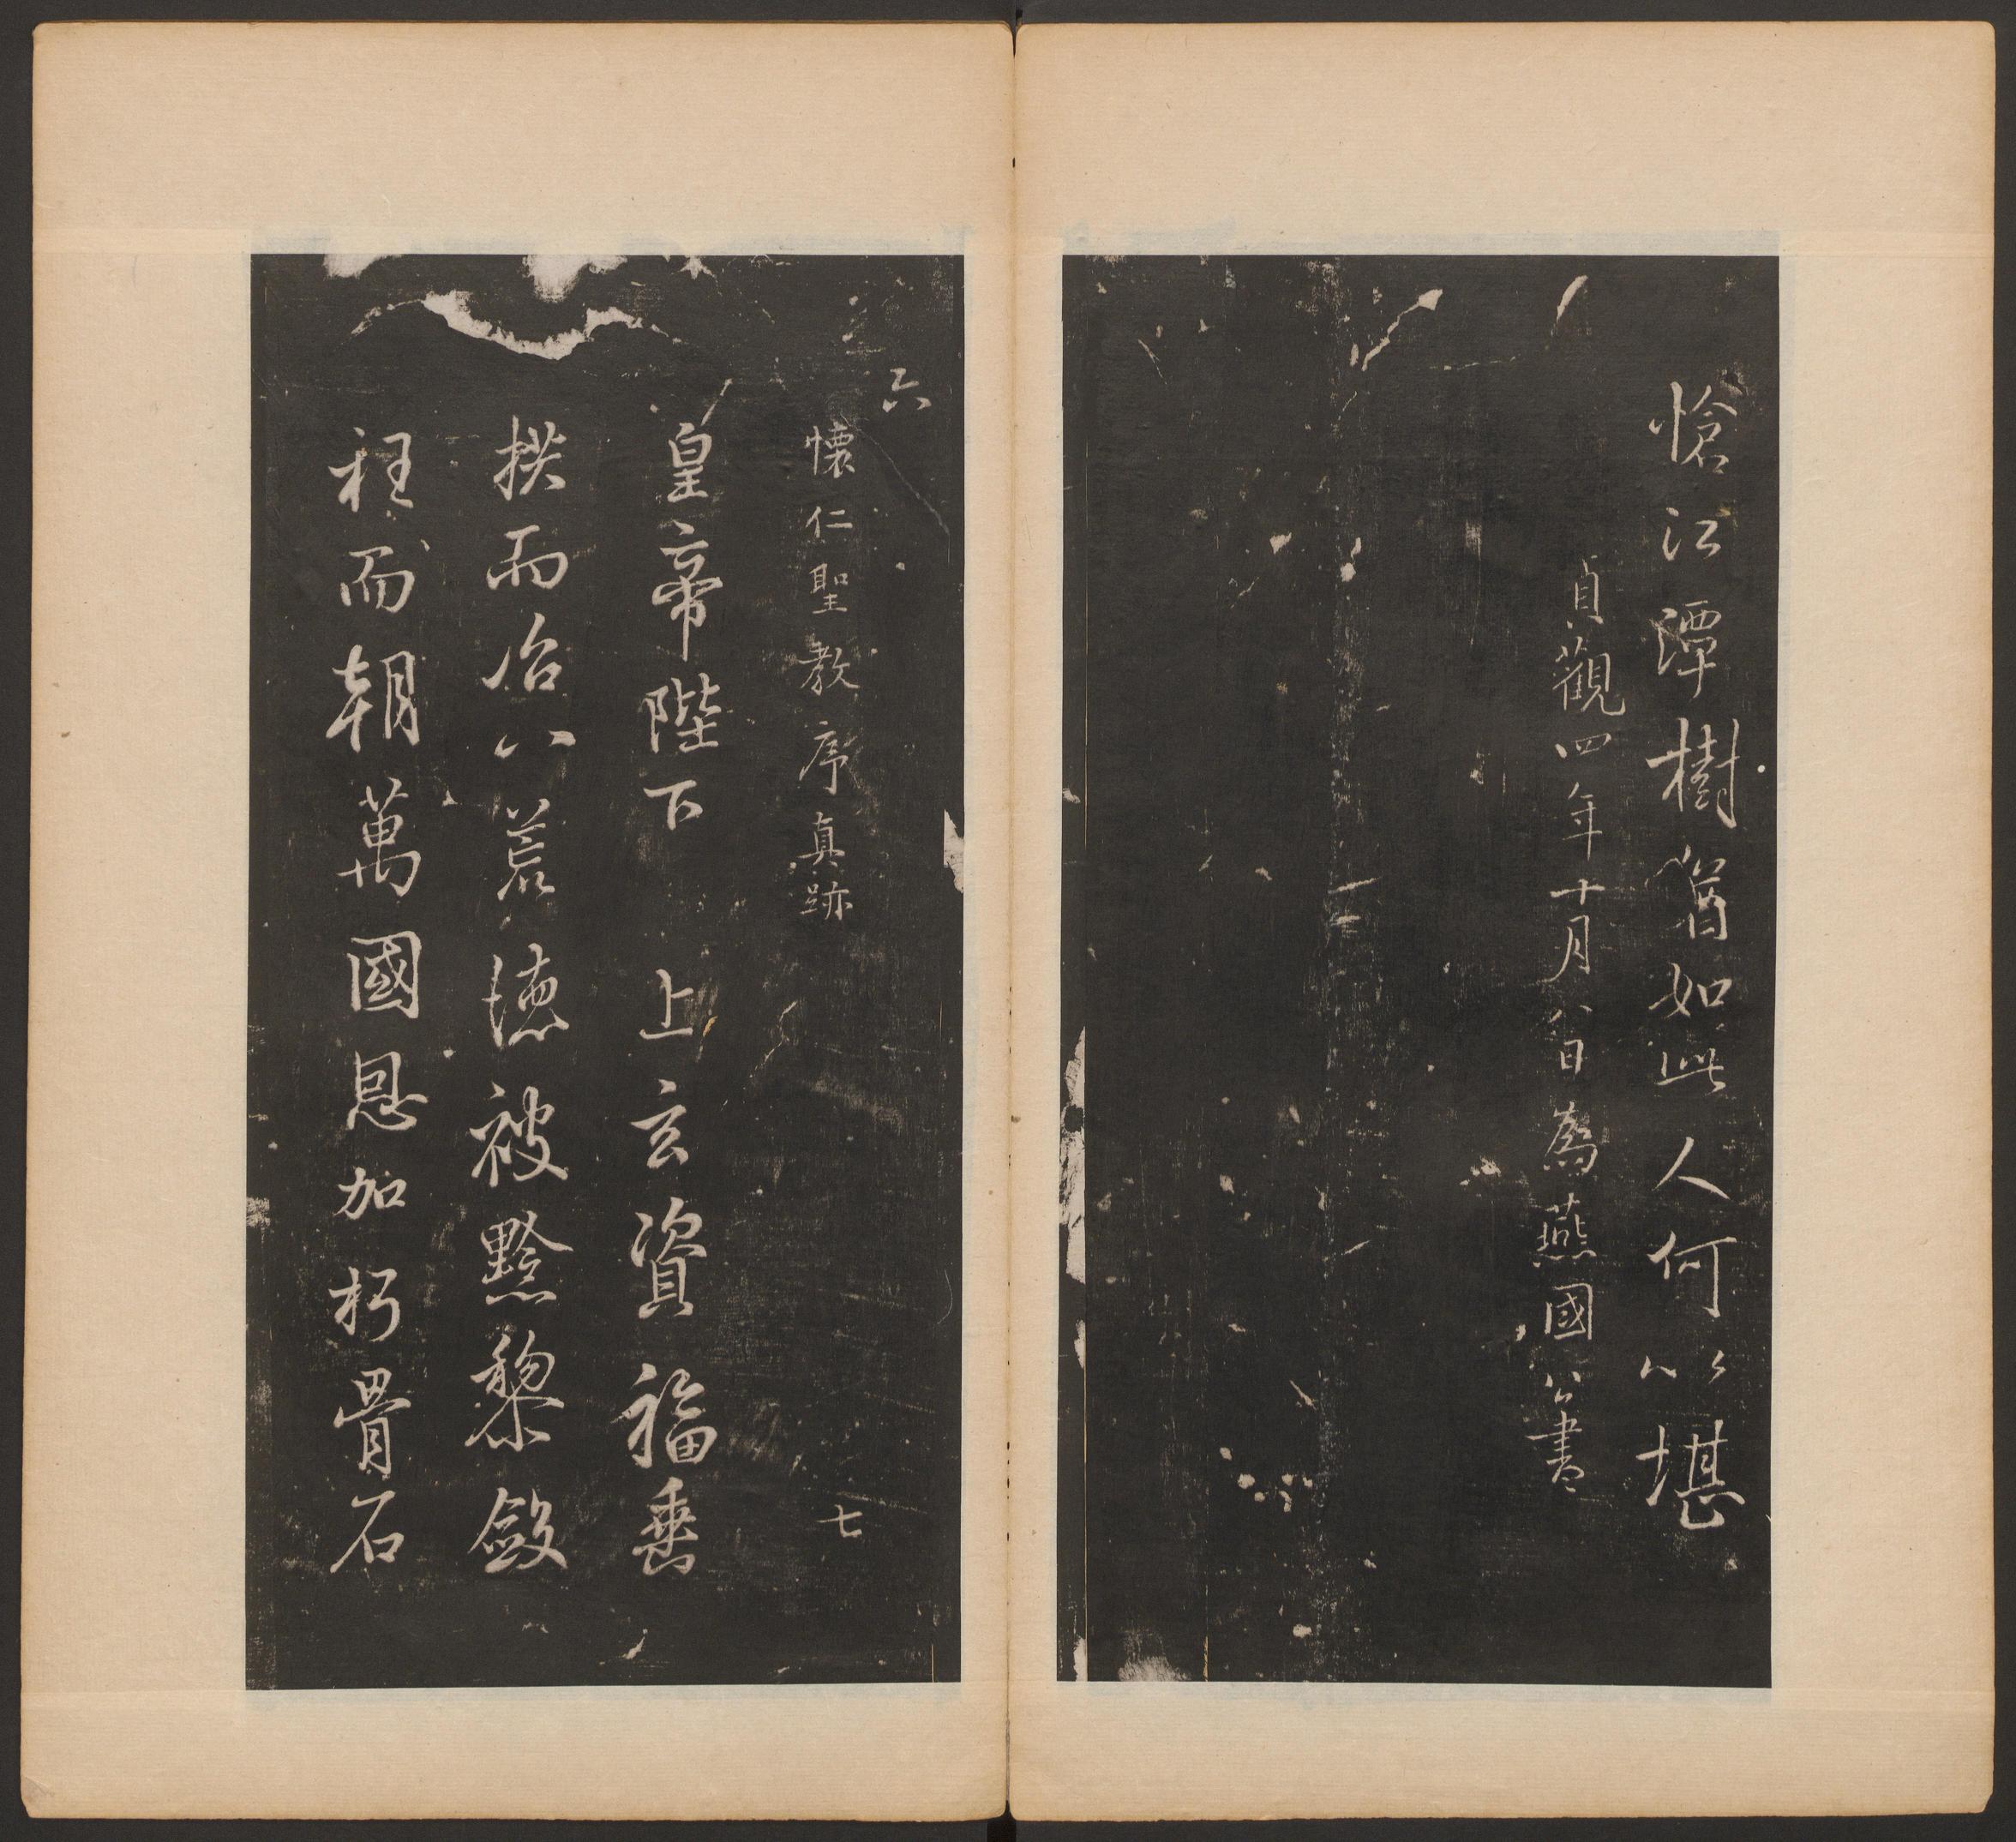 愴江潭樹猶如此人何以堪
貞觀四年十月八日為燕國公書
六
懷仁聖教序真跡
七
皇帝陛下　上玄資福垂
拱而治八荒德被黔黎斂
衽而朝萬國恩加朽骨石